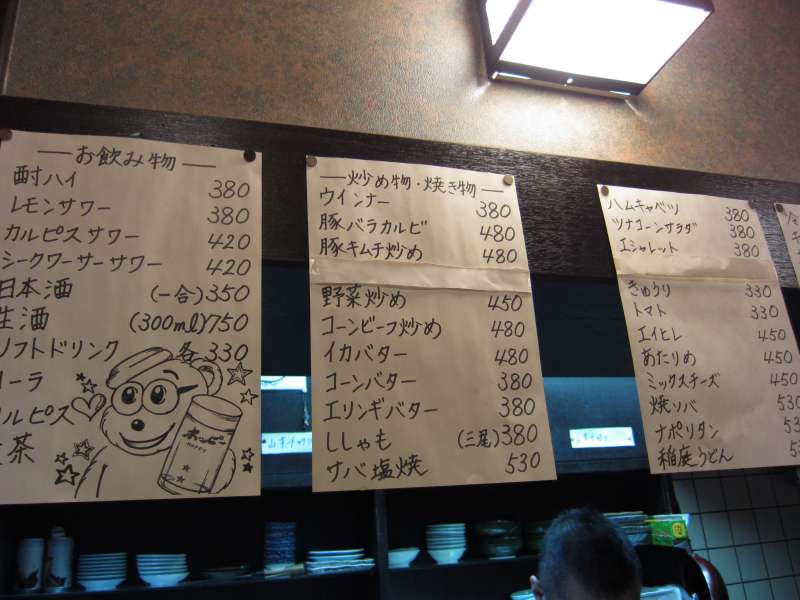 お飲み物
酎ハイ 380
レモンサワー 380
カルピスサワー 420
シークワーサーサワー 420
日本酒 (一合)350
生酒 (300ml)750
ソフトドリンク 各330
コーラ
カルピス
茶
ホッピー
HAPPY
炒め物・焼き物
ウインナー 380
豚バラカルビ 480
豚キムチ炒め 480
野菜炒め 450
コーンビーフ炒め 480
イカバター 480
コーンバター 380
エリンギバター 380
ししゃも (三尾)380
サバ塩焼 530
ハムキャベツ 380
ツナコーンサラダ 380
エシャレット 380
きゅうり 330
トマト 330
エイヒレ 450
あたりめ 450
ミックスチーズ 450
焼ソバ 530
ナポリタン 53
稲庭うどん 5